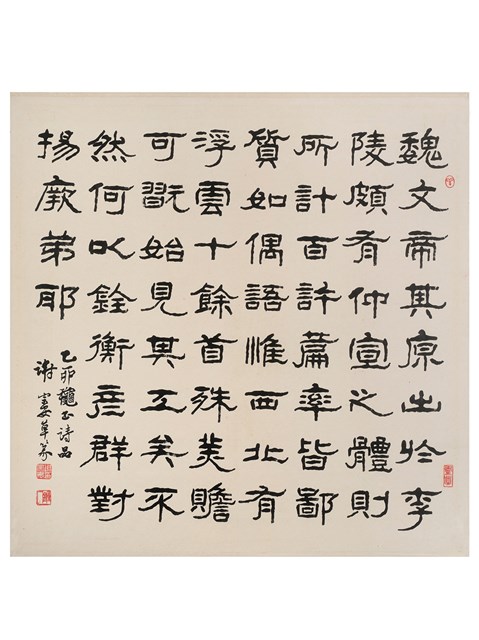 魏文帝其源出於李
陵頗有仲宣之體則
所計百許篇率皆鄙
質如偶語惟西北有
浮雲十餘首殊美贍
可翫始見其工矣不
然何以銓衡彥群對
揚厥弟耶
乙卯 詩品
謝